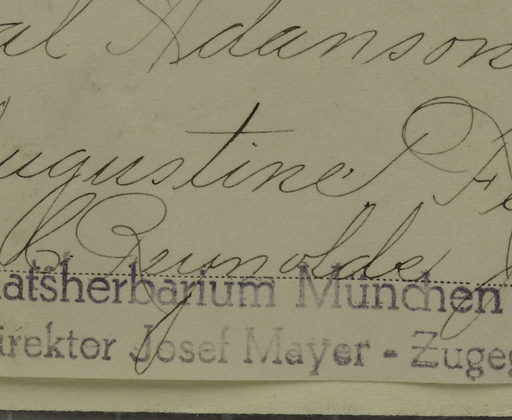 al Adanson
ugustine Fl
C Reynolds
atsherbarium München
irektor Josef Mayer - Zugeg